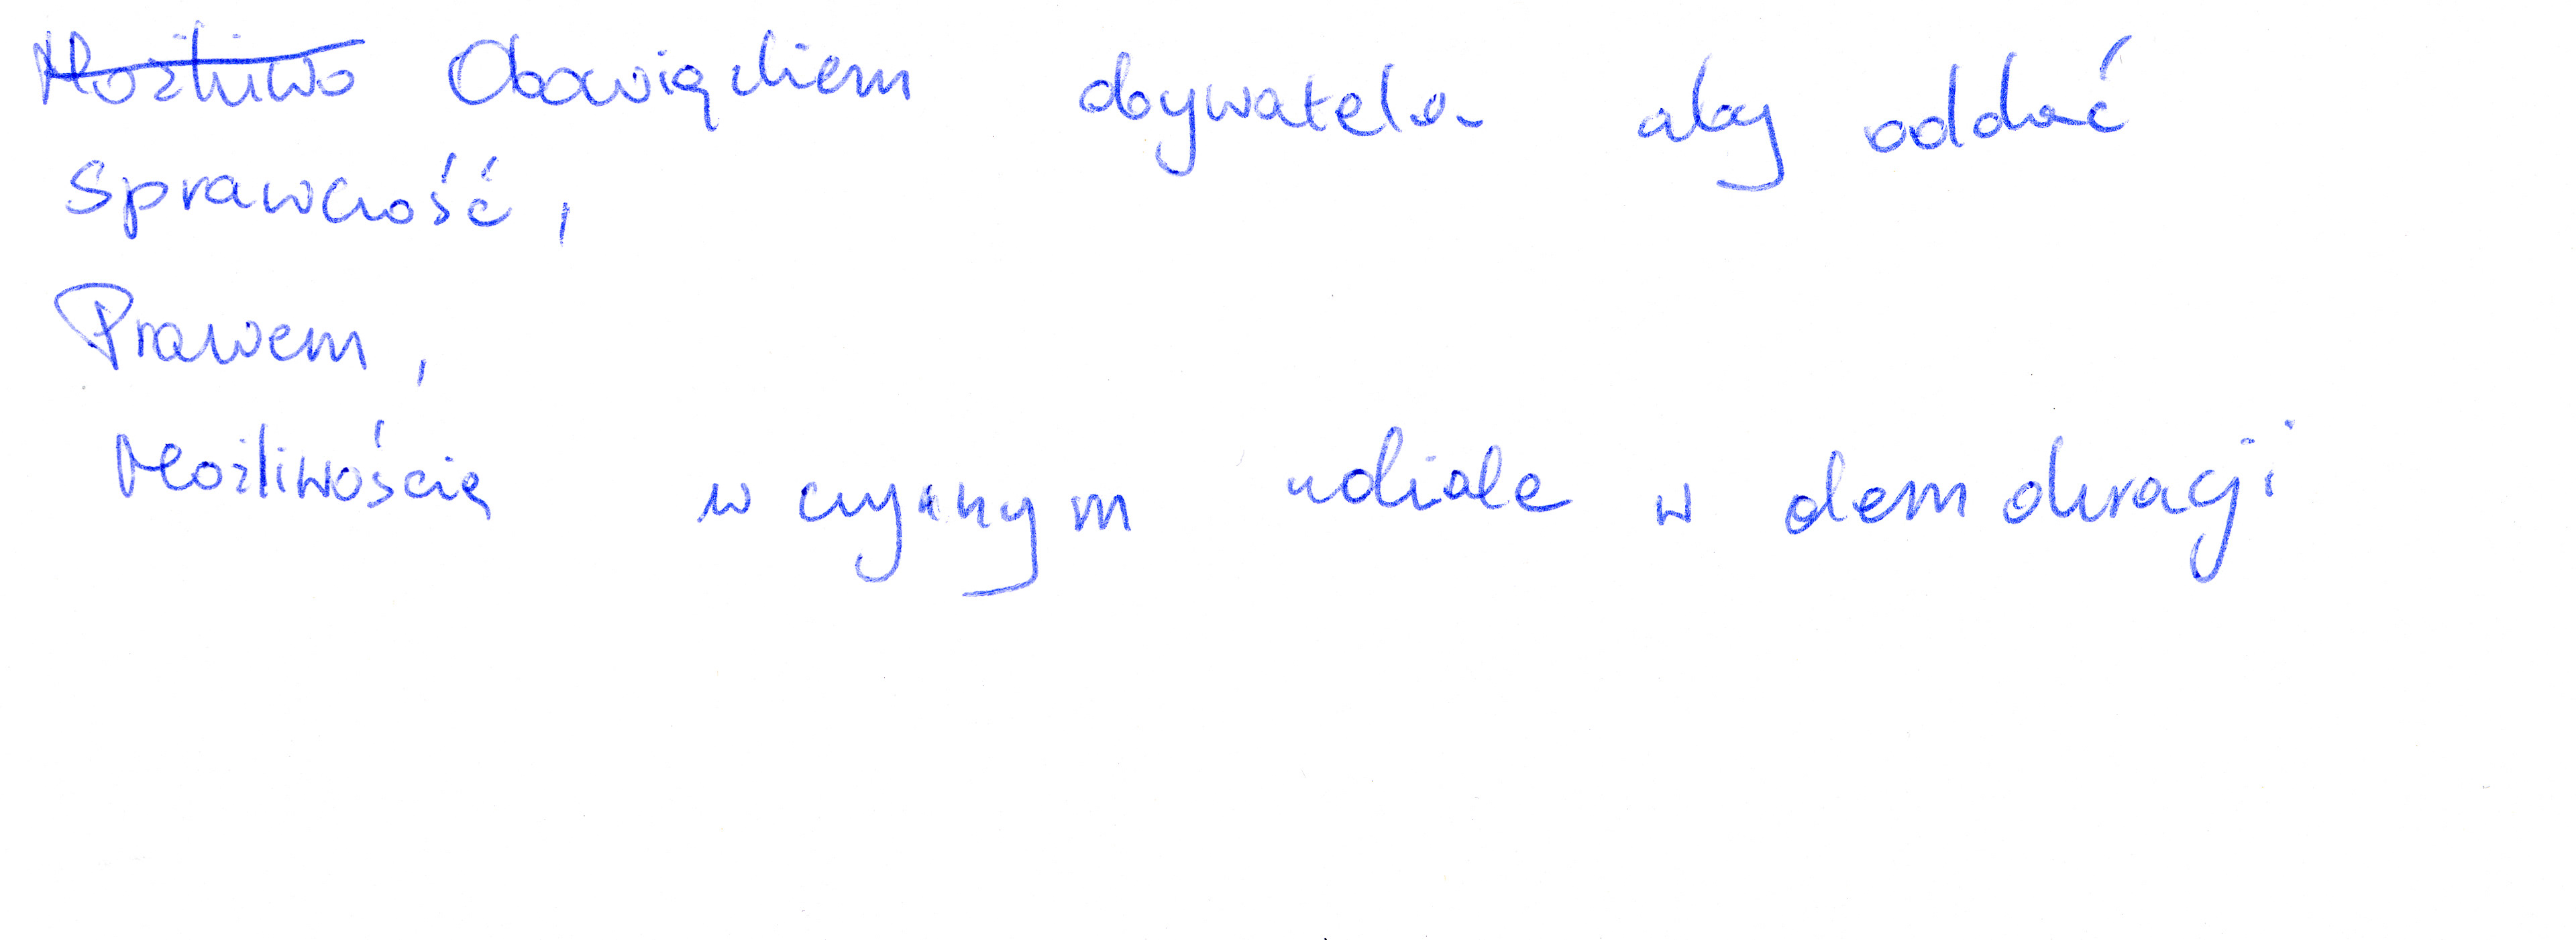 Możliwo Obowiązkiem obywatela aby oddać
sprawczość,
Prawem,
Możliwością w czynnym udziale w demokracji